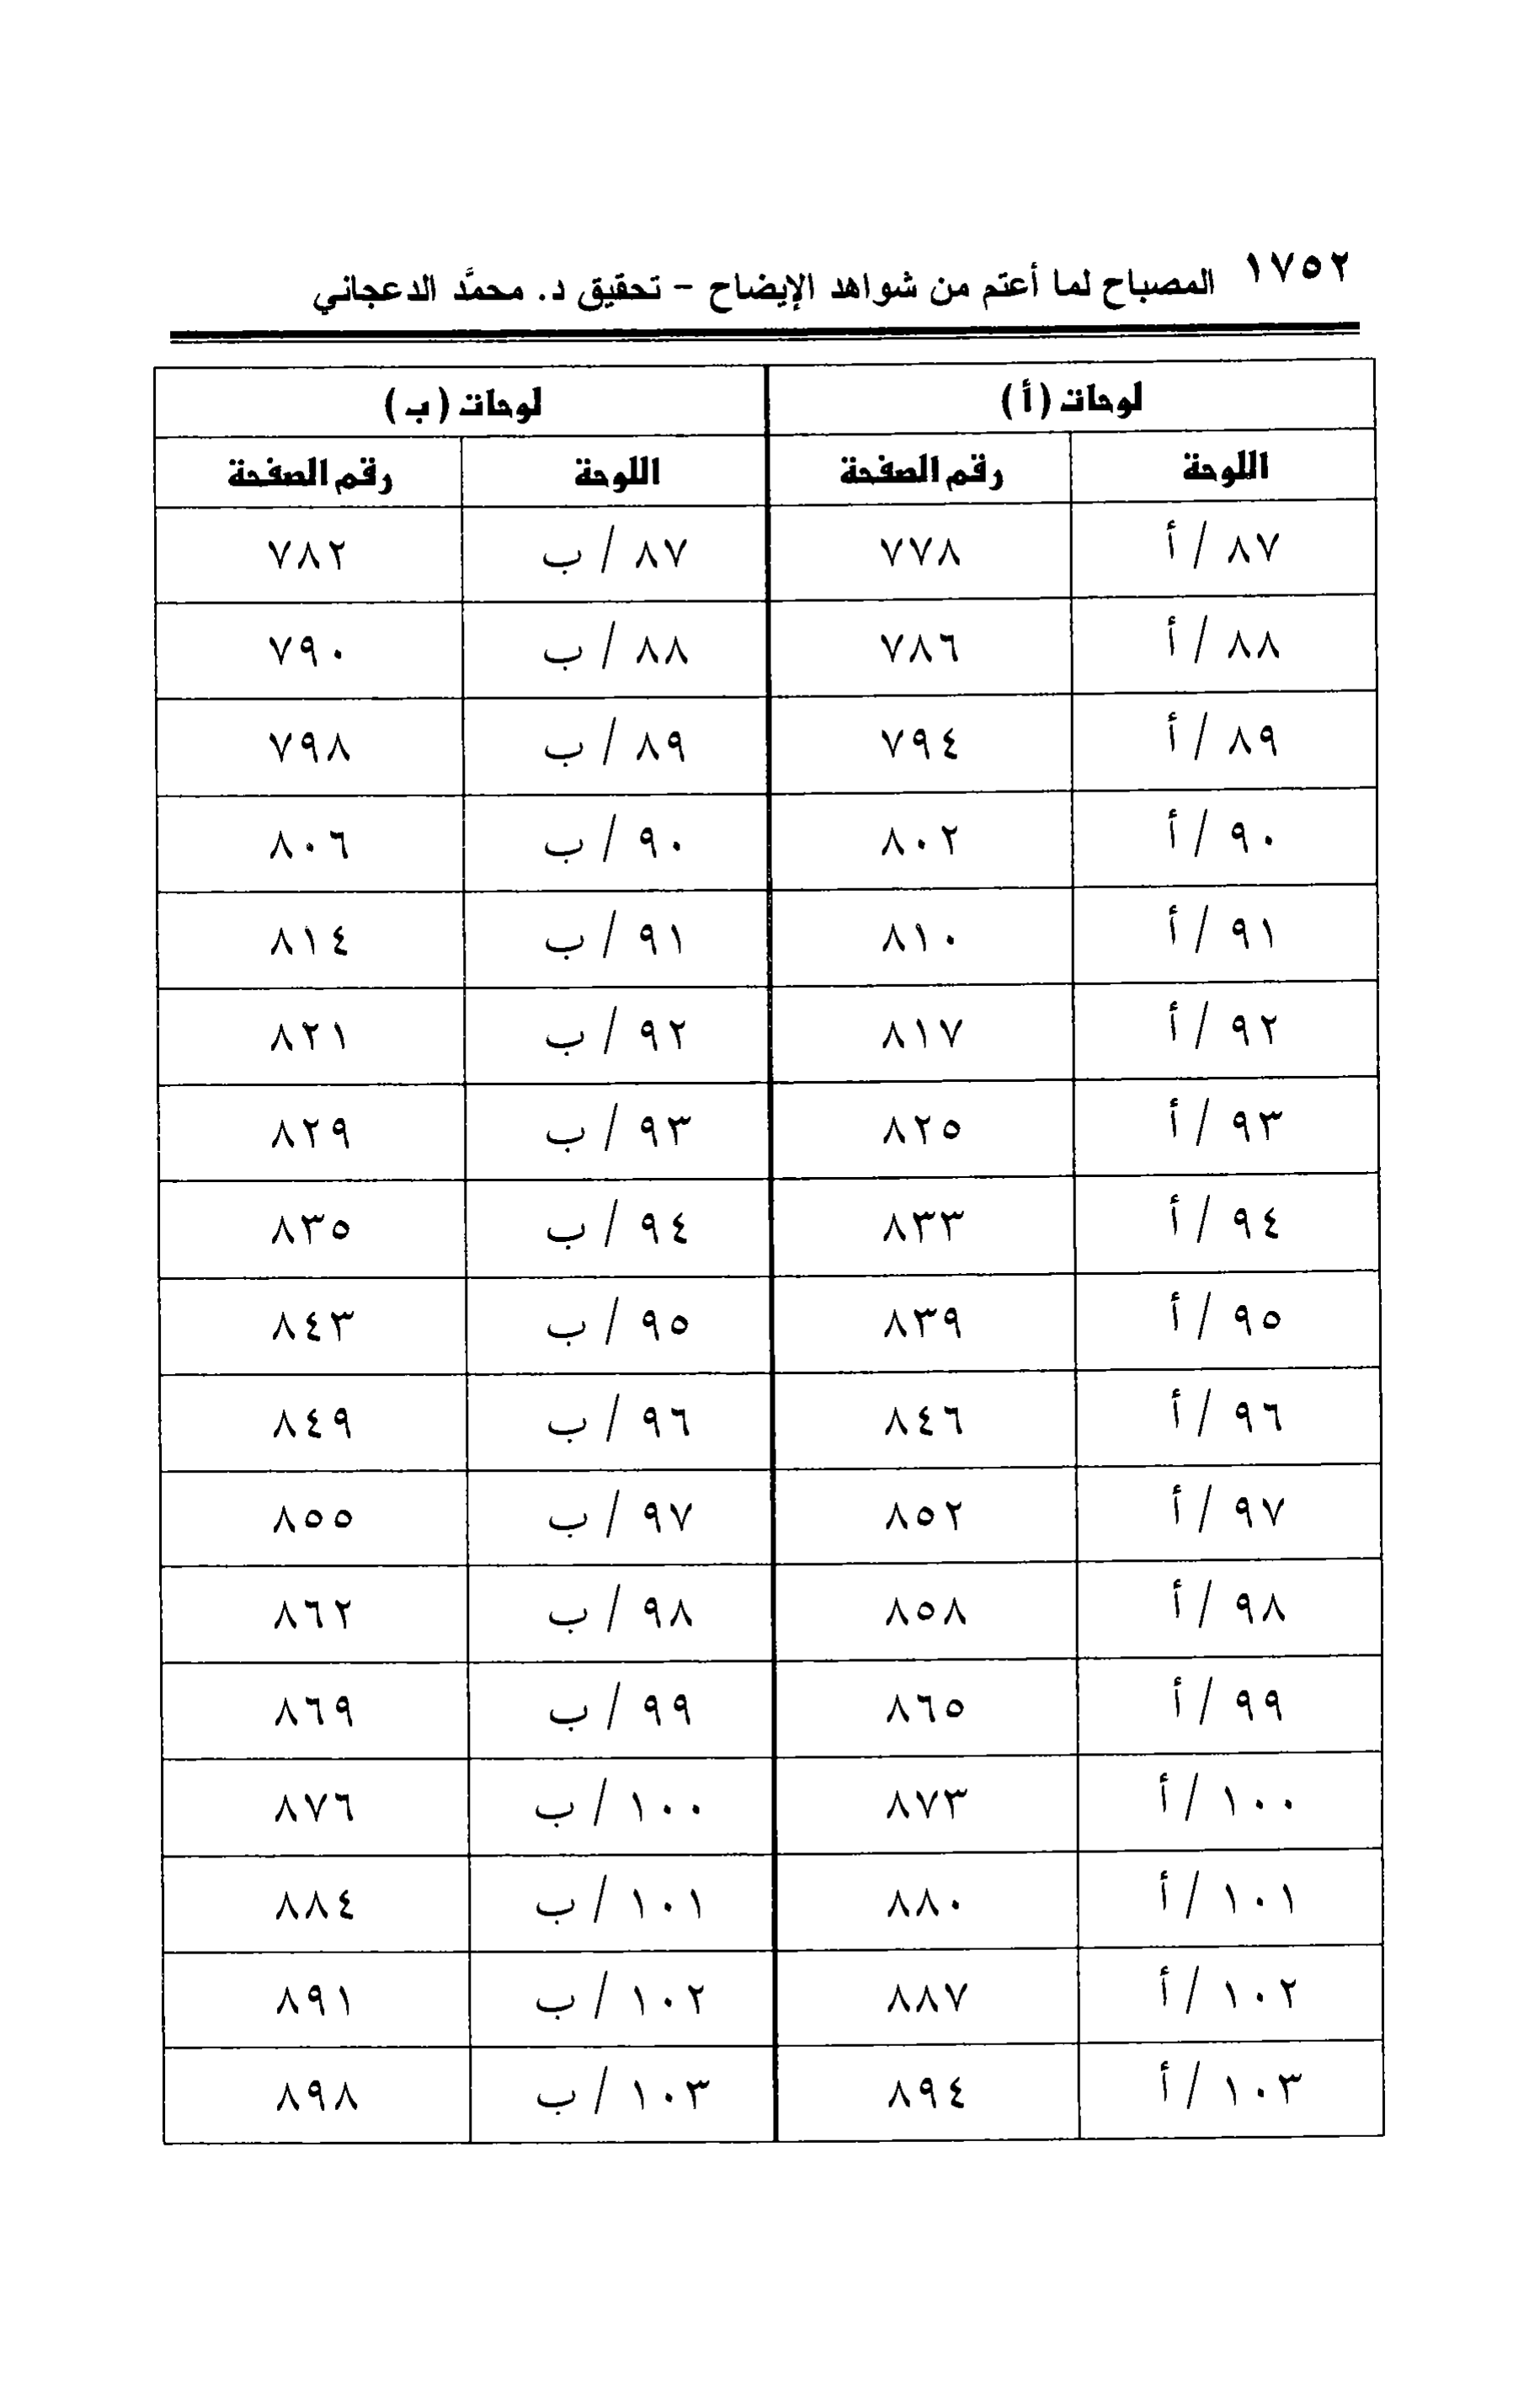 ١٧٥٢ المصباح لما أعتم من شواهد الإيضاح - تحقيق د. محمَّد الدعجاني
لوحات (أ) لوحات (ب)
اللوحة رقم الصفحة اللوحة رقم الصفحة
٨٧ / أ ٧٧٨ ٨٧ / ب ٧٨٢
٨٨ / أ ٧٨٦ ٨٨ / ب ٧٩٠
٨٩ / أ ٧٩٤ ٨٩ / ب ٧٩٨
٩٠ / أ ٨٠٢ ٩٠ / ب ٨٠٦
٩١ / أ ٨١٠ ٩١ / ب ٨١٤
٩٢ / أ ٨١٧ ٩٢ / ب ٨٢١
٩٣ / أ ٨٢٥ ٩٣ / ب ٨٢٩
٩٤ / أ ٨٣٣ ٩٤ / ب ٨٣٥
٩٥ / أ ٨٣٩ ٩٥ / ب ٨٤٣
٩٦ / أ ٨٤٦ ٩٦ / ب ٨٤٩
٩٧ / أ ٨٥٢ ٩٧ / ب ٨٥٥
٩٨ / أ ٨٥٨ ٩٨ / ب ٨٦٢
٩٩ / أ ٨٦٥ ٩٩ / ب ٨٦٩
١٠٠ / أ ٨٧٣ ١٠٠ / ب ٨٧٦
١٠١ / أ ٨٨٠ ١٠١ / ب ٨٨٤
١٠٢ / أ ٨٨٧ ١٠٢ / ب ٨٩١
١٠٣ / أ ٨٩٤ ١٠٣ / ب ٨٩٨